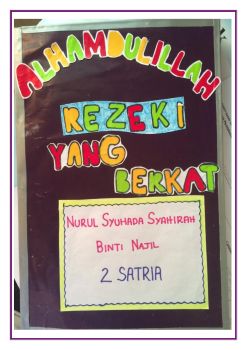 ALHAMDULILLAH
REZEKI
YANG
BERKAT
NURUL SYUHADA SYAHIRAH
BINTI NAJIL
2 SATRIA